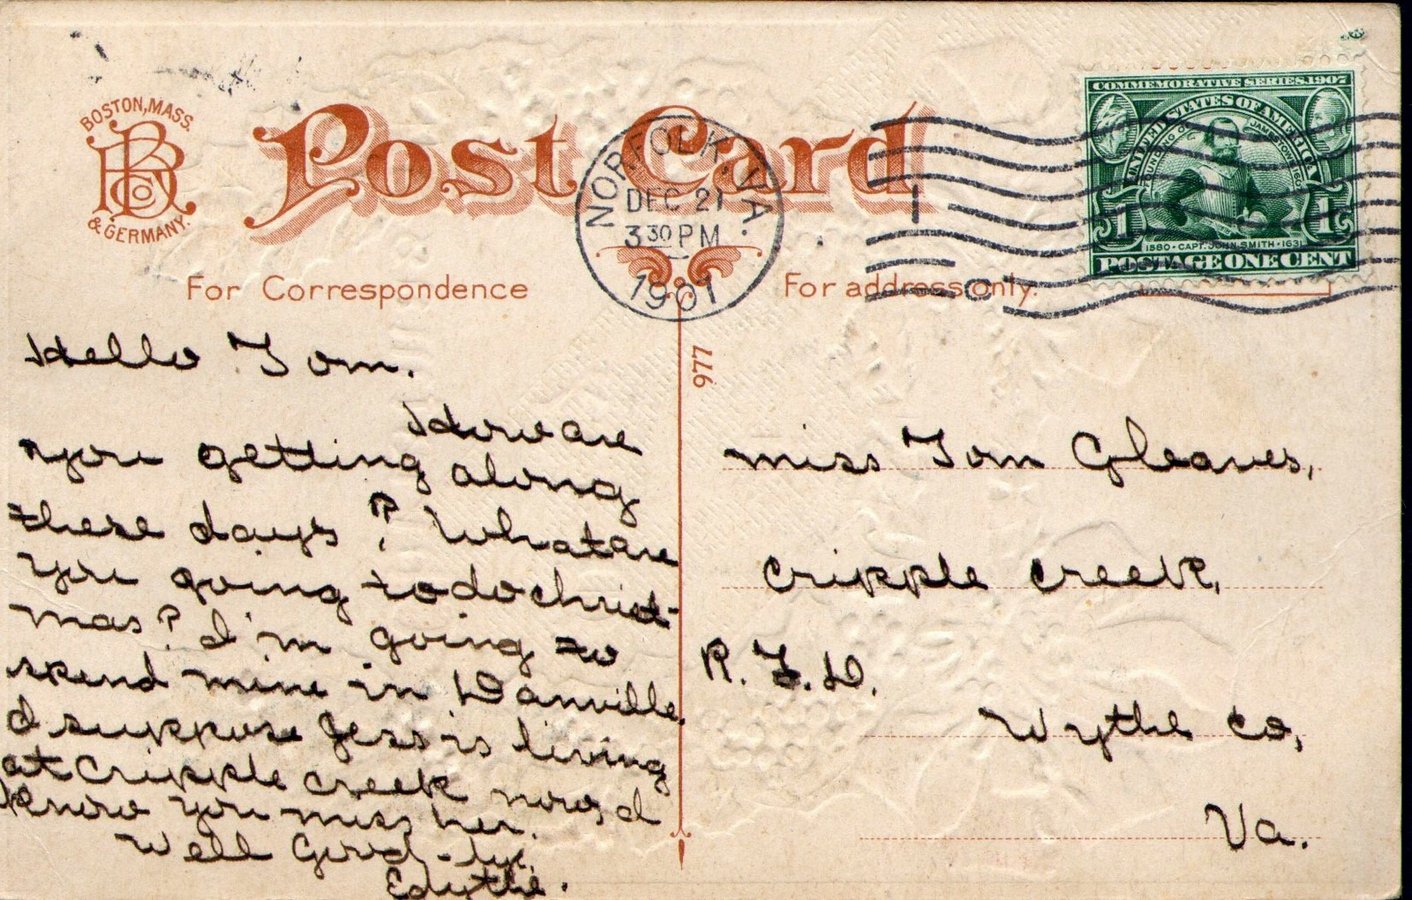 BOSTON, MASS.
BRCo
& GERMANY.
Post Card
NORFOLK, VA.
DEC 21
3 30 PM
1907
1
COMMEMORATIVE SERIES 1907
UNITED STATES OF AMERICA
FOUNDING OF JAMESTOWN 1607
1 1
1580 • CAPT. JOHN SMITH • 1631
POSTAGE ONE CENT
For Correspondence
For address only.
977
Hello Tom.
How are
you getting along
these days? What are
you going to do christ-
mas? I'm going to
spend mine in Danville.
I suppose Jess is living
at Cripple creek now & I
know you miss her.
Well Good-by.
Edythe.
miss Tom Gleaves,
Cripple creek,
R.F.D.
Wythe co,
Va.